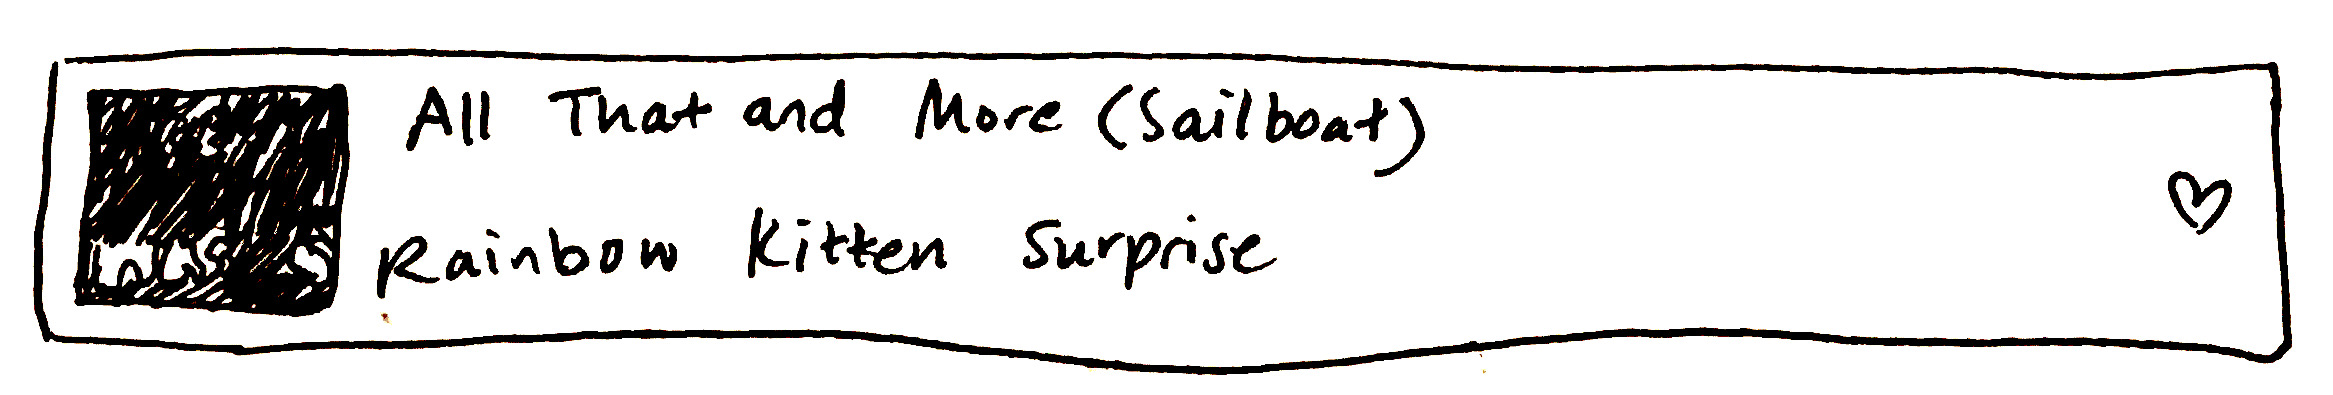 All That and More (Sailboat)
Rainbow Kitten Surprise